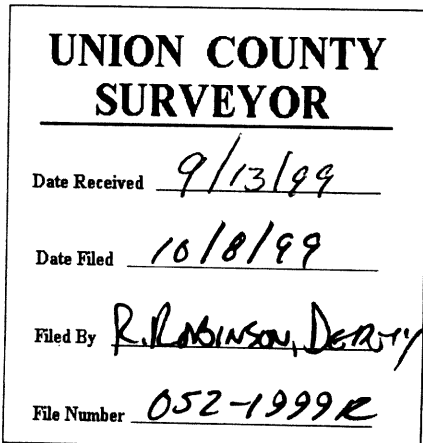 UNION COUNTY
SURVEYOR
Date Received 9/13/99
Date Filed 10/8/99
Filed By R. ROBINSON, DEPUTY
File Number 052-1999R